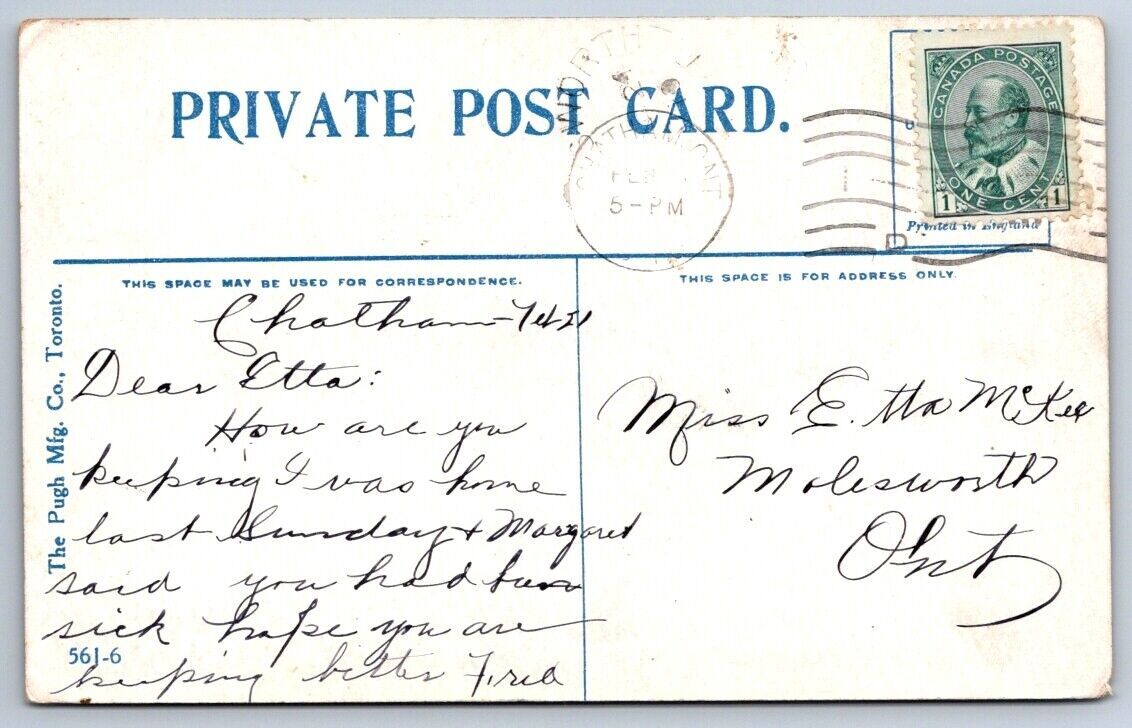 PRIVATE POST CARD.
WORTH
CHATHAM ONT
FE
5-PM
CANADA POSTAGE
ONE CENT
1 1
Printed in England
THIS SPACE MAY BE USED FOR CORRESPONDENCE.
THIS SPACE IS FOR ADDRESS ONLY.
The Pugh Mfg. Co., Toronto.
Chatham
Dear Etta:
How are you
keeping I was home
last Sunday + Margaret
said you had been
sick hope you are
keeping better Fred
561-6
Miss Etta McKee
Molesworth
Ont